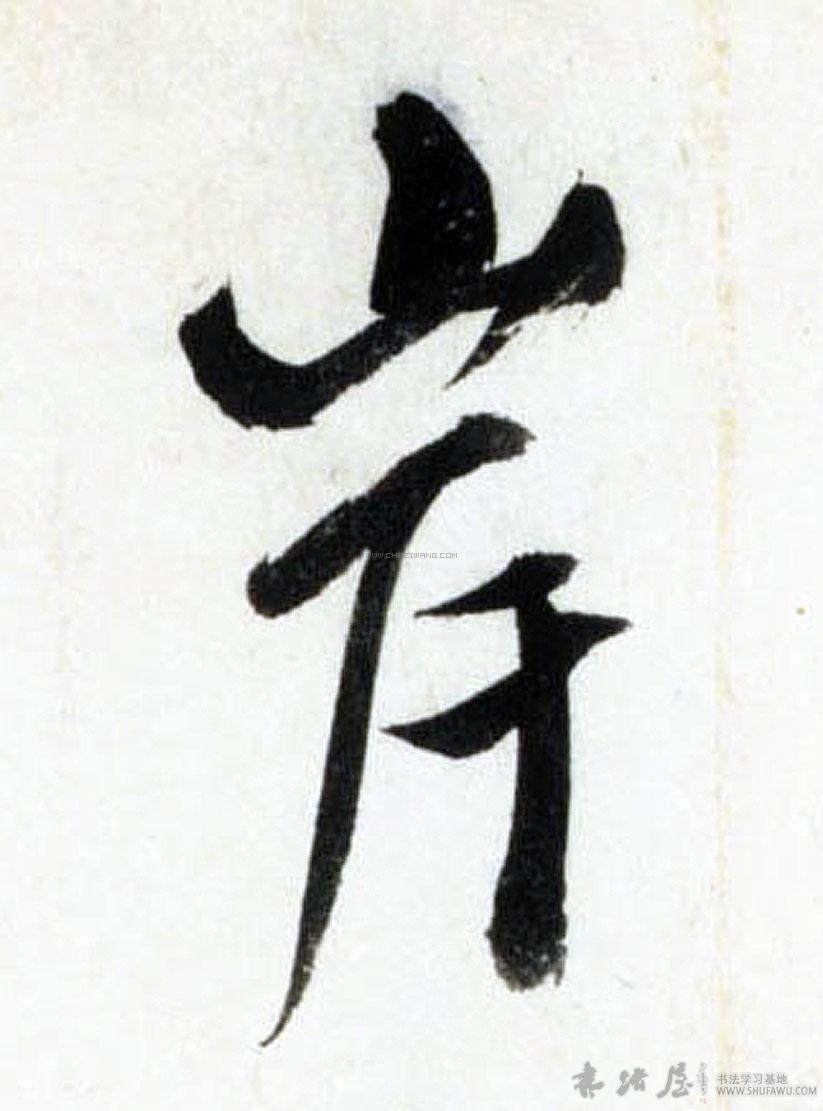 岸
WWW.CHAZIWANG.COM
书法屋
书法学习基地
WWW.SHUFAWU.COM